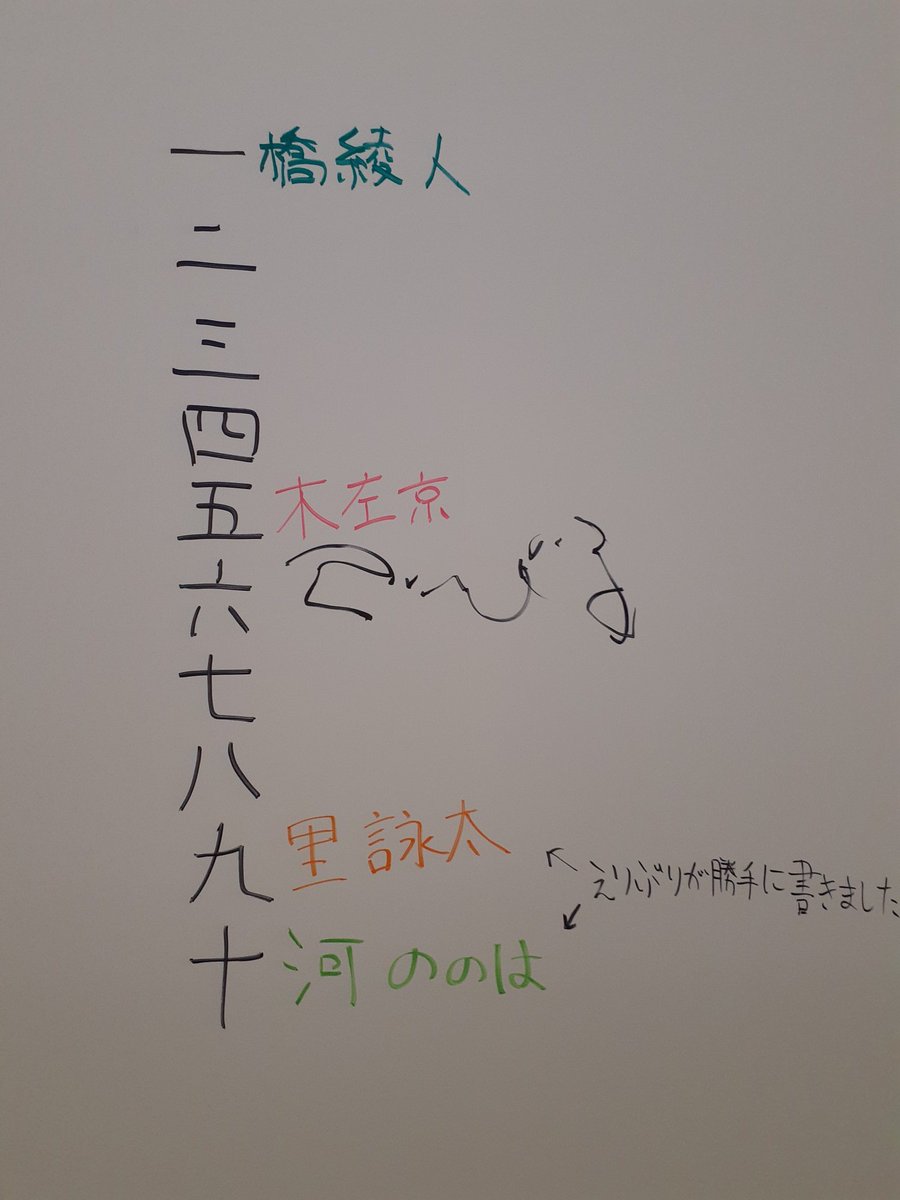 一橋綾人
二
三
四
五木左京
六
七
八
九里詠太
えりぶりが勝手に書きました
十河ののは